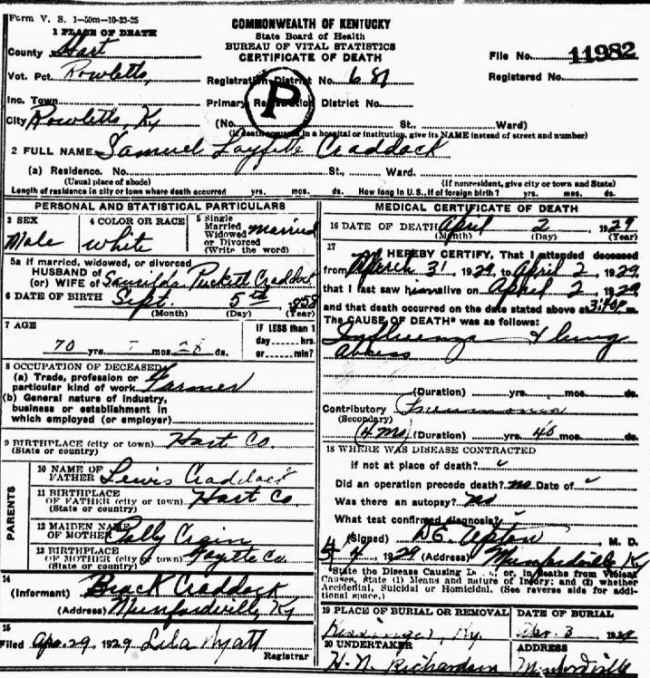 Form V. S. 1-50m-10-23-25
COMMONWEALTH OF KENTUCKY
State Board of Health
BUREAU OF VITAL STATISTICS
CERTIFICATE OF DEATH
1 PLACE OF DEATH
County Hart
Vot. Pct. Rowletts,
Inc. Town
City Rowletts, Ky
Registration District No. 681
Primary Registration District No.
P
File No. 11982
Registered No.
(No. St., Ward)
(If death occurred in a hospital or institution, give its NAME instead of street and number)
2 FULL NAME Samuel Craddock
(a) Residence. No. St., Ward.
(Usual place of abode) (If nonresident, give city or town and State)
Length of residence in city or town where death occurred yrs. mos. ds. How long in U.S., if of foreign birth? yrs. mos. ds.
PERSONAL AND STATISTICAL PARTICULARS
3 SEX
Male
4 COLOR OR RACE
white
5 Single
Married
Widowed
or Divorced
(Write the word)
married
5a If married, widowed, or divorced
HUSBAND of
(or) WIFE of Puckett Craddock
6 DATE OF BIRTH Sept. 5th 858
(Month) (Day) (Year)
7 AGE
70 yrs. ds.
IF LESS than 1
day hrs.
or min?
8 OCCUPATION OF DECEASED
(a) Trade, profession or
particular kind of work Farmer
(b) General nature of industry,
business or establishment in
which employed (or employer)
9 BIRTHPLACE (city or town) Hart Co.
(State or country)
PARENTS
10 NAME OF
FATHER Lewis Craddock
11 BIRTHPLACE
OF FATHER (city or town) Hart Co
(State or country)
12 MAIDEN NAME
OF MOTHER Polly
13 BIRTHPLACE
OF MOTHER (city or town) Fayette Co.
(State or country)
14
(Informant) Craddock
(Address) Munfordville, Ky
15
Filed Apr. 29, 1929 Lila Wyatt
Registrar
MEDICAL CERTIFICATE OF DEATH
16 DATE OF DEATH April 2 1929
(Month) (Day) (Year)
17
I HEREBY CERTIFY, That I attended deceased
from March 31, 1929, to April 2, 1929,
that I last saw him alive on April 2, 1929
and that death occurred on the date stated above at m.
The CAUSE OF DEATH* was as follows:
Influenza & lung
(Duration) yrs. mos. ds.
Contributory Pneumonia
(Secondary)
(Duration) yrs. mos. ds.
18 WHERE WAS DISEASE CONTRACTED
if not at place of death?
Did an operation precede death? no Date of
Was there an autopsy? no
What test confirmed diagnosis?
(Signed) M. D.
1929 (Address) Munfordville Ky
*State the Disease Causing Death, or, in deaths from Violent
Causes, state (1) Means and nature of Injury; and (2) whether
Accidental, Suicidal or Homicidal. (See reverse side for addi-
tional space.)
19 PLACE OF BURIAL OR REMOVAL
Ky.
DATE OF BURIAL
3
20 UNDERTAKER
H. N. Richardson
ADDRESS
Munfordville